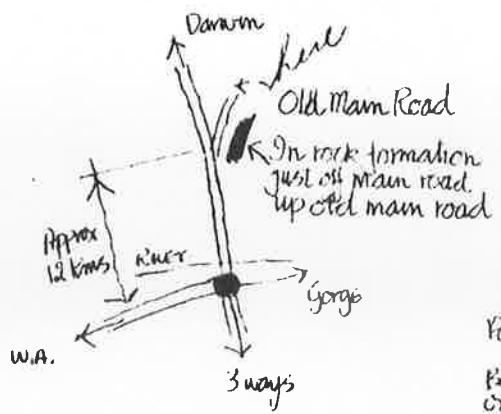 Darwin
here
Old Main Road
In rock formation
just off main road.
up old main road
Approx
12 kms
River
Gorge
W.A.
3 ways